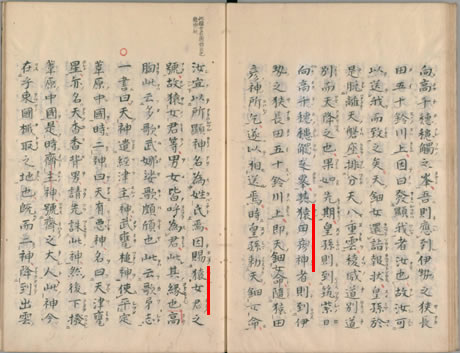 向高千穗槵觸之峯吾則應到伊勢之狹長
田五十鈴川上因曰發顯我者汝也故汝可
以送我而致之矣天鈿女還詣報狀皇孫於
是脱離天磐座排分天八重雲稜威道別道
別而天降之也果如先期皇孫則到筑紫日
向高千穗槵觸之峯其猿田彦神者則到伊
勢之狹長田五十鈴川上即天鈿女命隨猿田
彦神所乞遂以相送焉時皇孫勅天鈿女命
汝宜以所顯神名為姓氏焉因賜猿女君之
號故猿女君等男女皆呼為君此其緣也高
胸此云多歌武娜娑歌頗傾也此云歌矛志
一書曰天神遣經津主神武甕槌神使平定
葦原中國時二神曰天有惡神名曰天津甕
星亦名天香香背男請先誅此神然後下撥
葦原中國是時齋主神號齋之大人此神今
在乎東國檝取之地也既而二神降到出雲